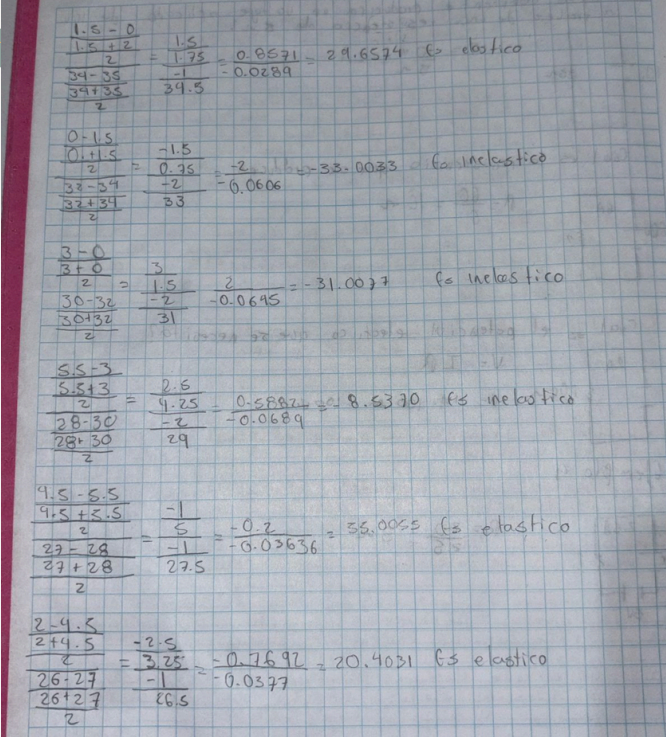 (1.5 - 0)/((1.5 + 2)/2) / (34 - 35)/((34 + 35)/2) = (1.5/1.75)/(-1/34.5) = 0.8571/-0.0289 = 29.6574 Es elastico
(0 - 1.5)/((0. + 1.5)/2) / (32 - 34)/((32 + 34)/2) = (-1.5/0.75)/(-2/33) = -2/-0.0606 = -33.0033 Es inelastico
(3 - 0)/((3 + 0)/2) / (30 - 32)/((30 + 32)/2) = (3/1.5)/(-2/31) 2/-0.0645 = -31.0077 Es inelastico
(5.5 - 3)/((5.5 + 3)/2) / (28 - 30)/((28 + 30)/2) = (2.5/4.25)/(-2/29) = 0.5882/-0.0689 = -8.5370 Es inelastico
(4.5 - 5.5)/((4.5 + 5.5)/2) / (27 - 28)/((27 + 28)/2) = (-1/5)/(-1/27.5) = -0.2/-0.03636 = 55.0055 Es elastico
(2 - 4.5)/((2 + 4.5)/2) / (26 - 27)/((26 + 27)/2) = (-2.5/3.25)/(-1/26.5) = -0.7692/-0.0377 = 20.4031 Es elastico